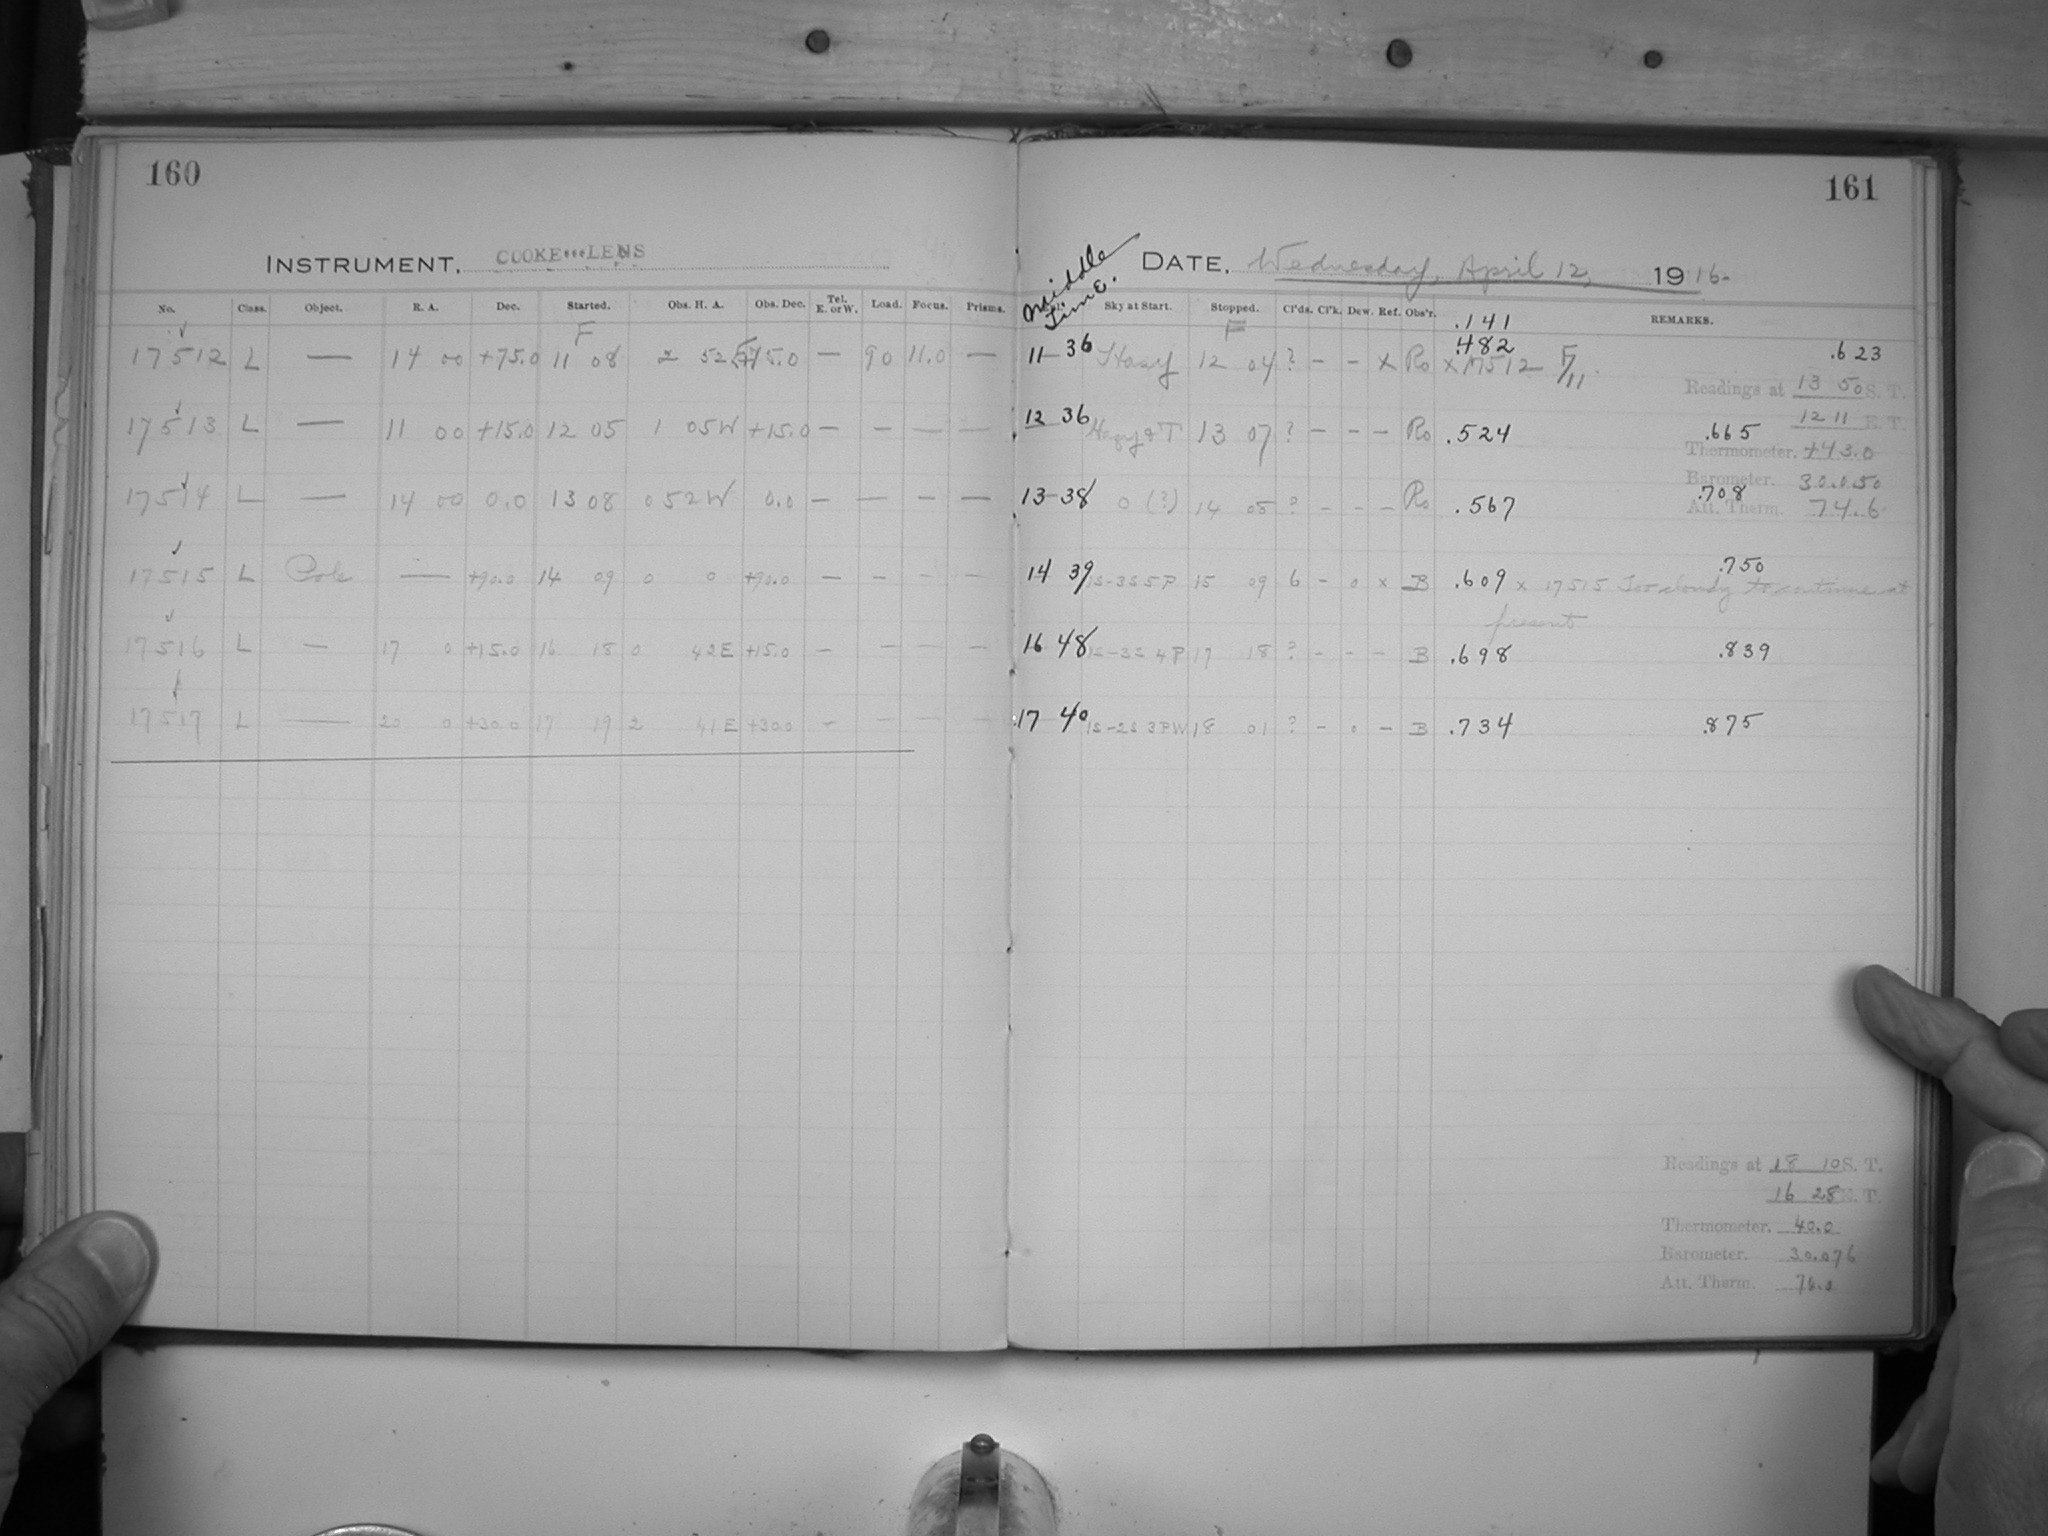 160
INSTRUMENT. COOKE***LENS
No. Class. Object. R. A. Dec. Started. Obs. H. A. Obs. Dec. Tel. E. or W. Load. Focus. Prisms.
F
17512 L — 14 00 +75.0 11 08 2 52 E +75.0 — 90 11.0 —
17513 L — 11 00 +15.0 12 05 1 05W +15.0 — — — —
17514 L — 14 00 0.0 13 08 0 52W 0.0 — — — —
17515 L Pole — +90.0 14 09 0 0 +90.0 — — — —
17516 L — 17 0 +15.0 16 18 0 42E +15.0 — — — —
17517 L — 20 0 +30.0 17 19 2 41E +30.0 — — — —
161
Middle Time.
DATE. Wednesday, April 12, 1916.
Sky at Start. Stopped. Cl'ds. Cl'k. Dew. Ref. Obs'r. REMARKS.
F
.141
11 36 Hazy 12 04 ? — — x Ro .482 x 17512 F/11. .623
Readings at 13 50 S. T.
12 11 E. T.
12 36 Hazy & T 13 07 ? — — — Ro .524 .665
Thermometer. +43.0
Barometer. 30.050
13 38 0 (?) 14 08 ? — — — Ro .567 .708
Att. Therm. 74.6
14 39 1S-3S 5P 15 09 6 — 0 x B .609 x 17515 Too cloudy to continue at .750
present
16 48 1S-3S 4P 17 18 ? — — — B .698 .839
17 40 1S-2S 3PW 18 01 ? — 0 — B .734 .875
Readings at 18 10 S. T.
16 28 E. T.
Thermometer. 40.0
Barometer. 30.076
Att. Therm.